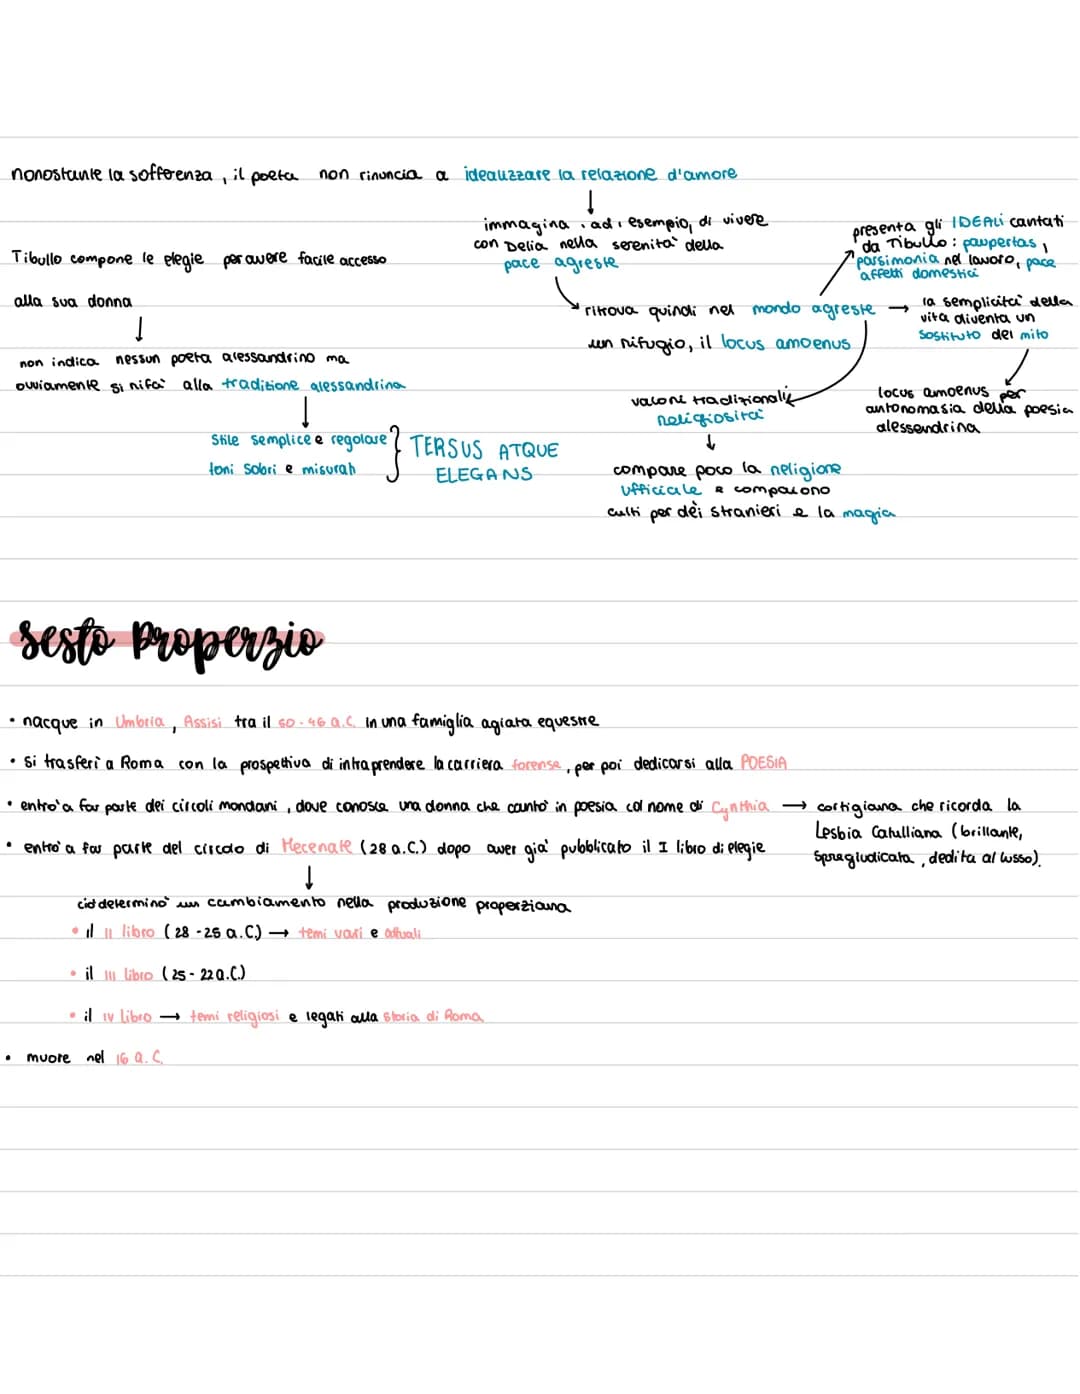 nonostante la sofferenza, il poeta non rinuncia a idealizzare la relazione d'amore
↓
immagina, ad esempio, di vivere
con Delia nella serenità della
pace agreste
ritrova quindi nel mondo agreste →
un rifugio, il locus amoenus
presenta gli IDEALI cantati
da Tibullo: paupertas,
parsimonia nel lavoro, pace
affetti domestici
la semplicità della
vita diventa un
sostituto del mito
locus amoenus per
antonomasia della poesia
alessandrina
valori tradizionali
religiosità
↓
compare poco la religione
ufficiale e compaiono
culti per dèi stranieri e la magia
Tibullo compone le elegie per avere facile accesso
alla sua donna
↓
non indica nessun poeta alessandrino ma
ovviamente si rifà alla tradizione alessandrina
↓
Stile semplice e regolare
toni sobri e misurati
} TERSUS ATQUE
ELEGANS
Sesto Properzio
• nacque in Umbria, Assisi tra il 50-46 a.C. in una famiglia agiata equestre
• si trasferì a Roma con la prospettiva di intraprendere la carriera forense, per poi dedicarsi alla POESIA
• entrò a far parte dei circoli mondani, dove conosce una donna che cantò in poesia col nome di Cynthia → cortigiana che ricorda la
Lesbia Catulliana (brillante,
spregiudicata, dedita al lusso).
• entrò a far parte del circolo di Mecenate (28 a.C.) dopo aver già pubblicato il I libro di elegie
↓
ciò determinò un cambiamento nella produzione properziana
• il II libro (28-25 a.C) → temi vari e attuali
• il III libro (25-22 a.C.)
• il IV libro → temi religiosi e legati alla storia di Roma
• muore nel 16 a.C.